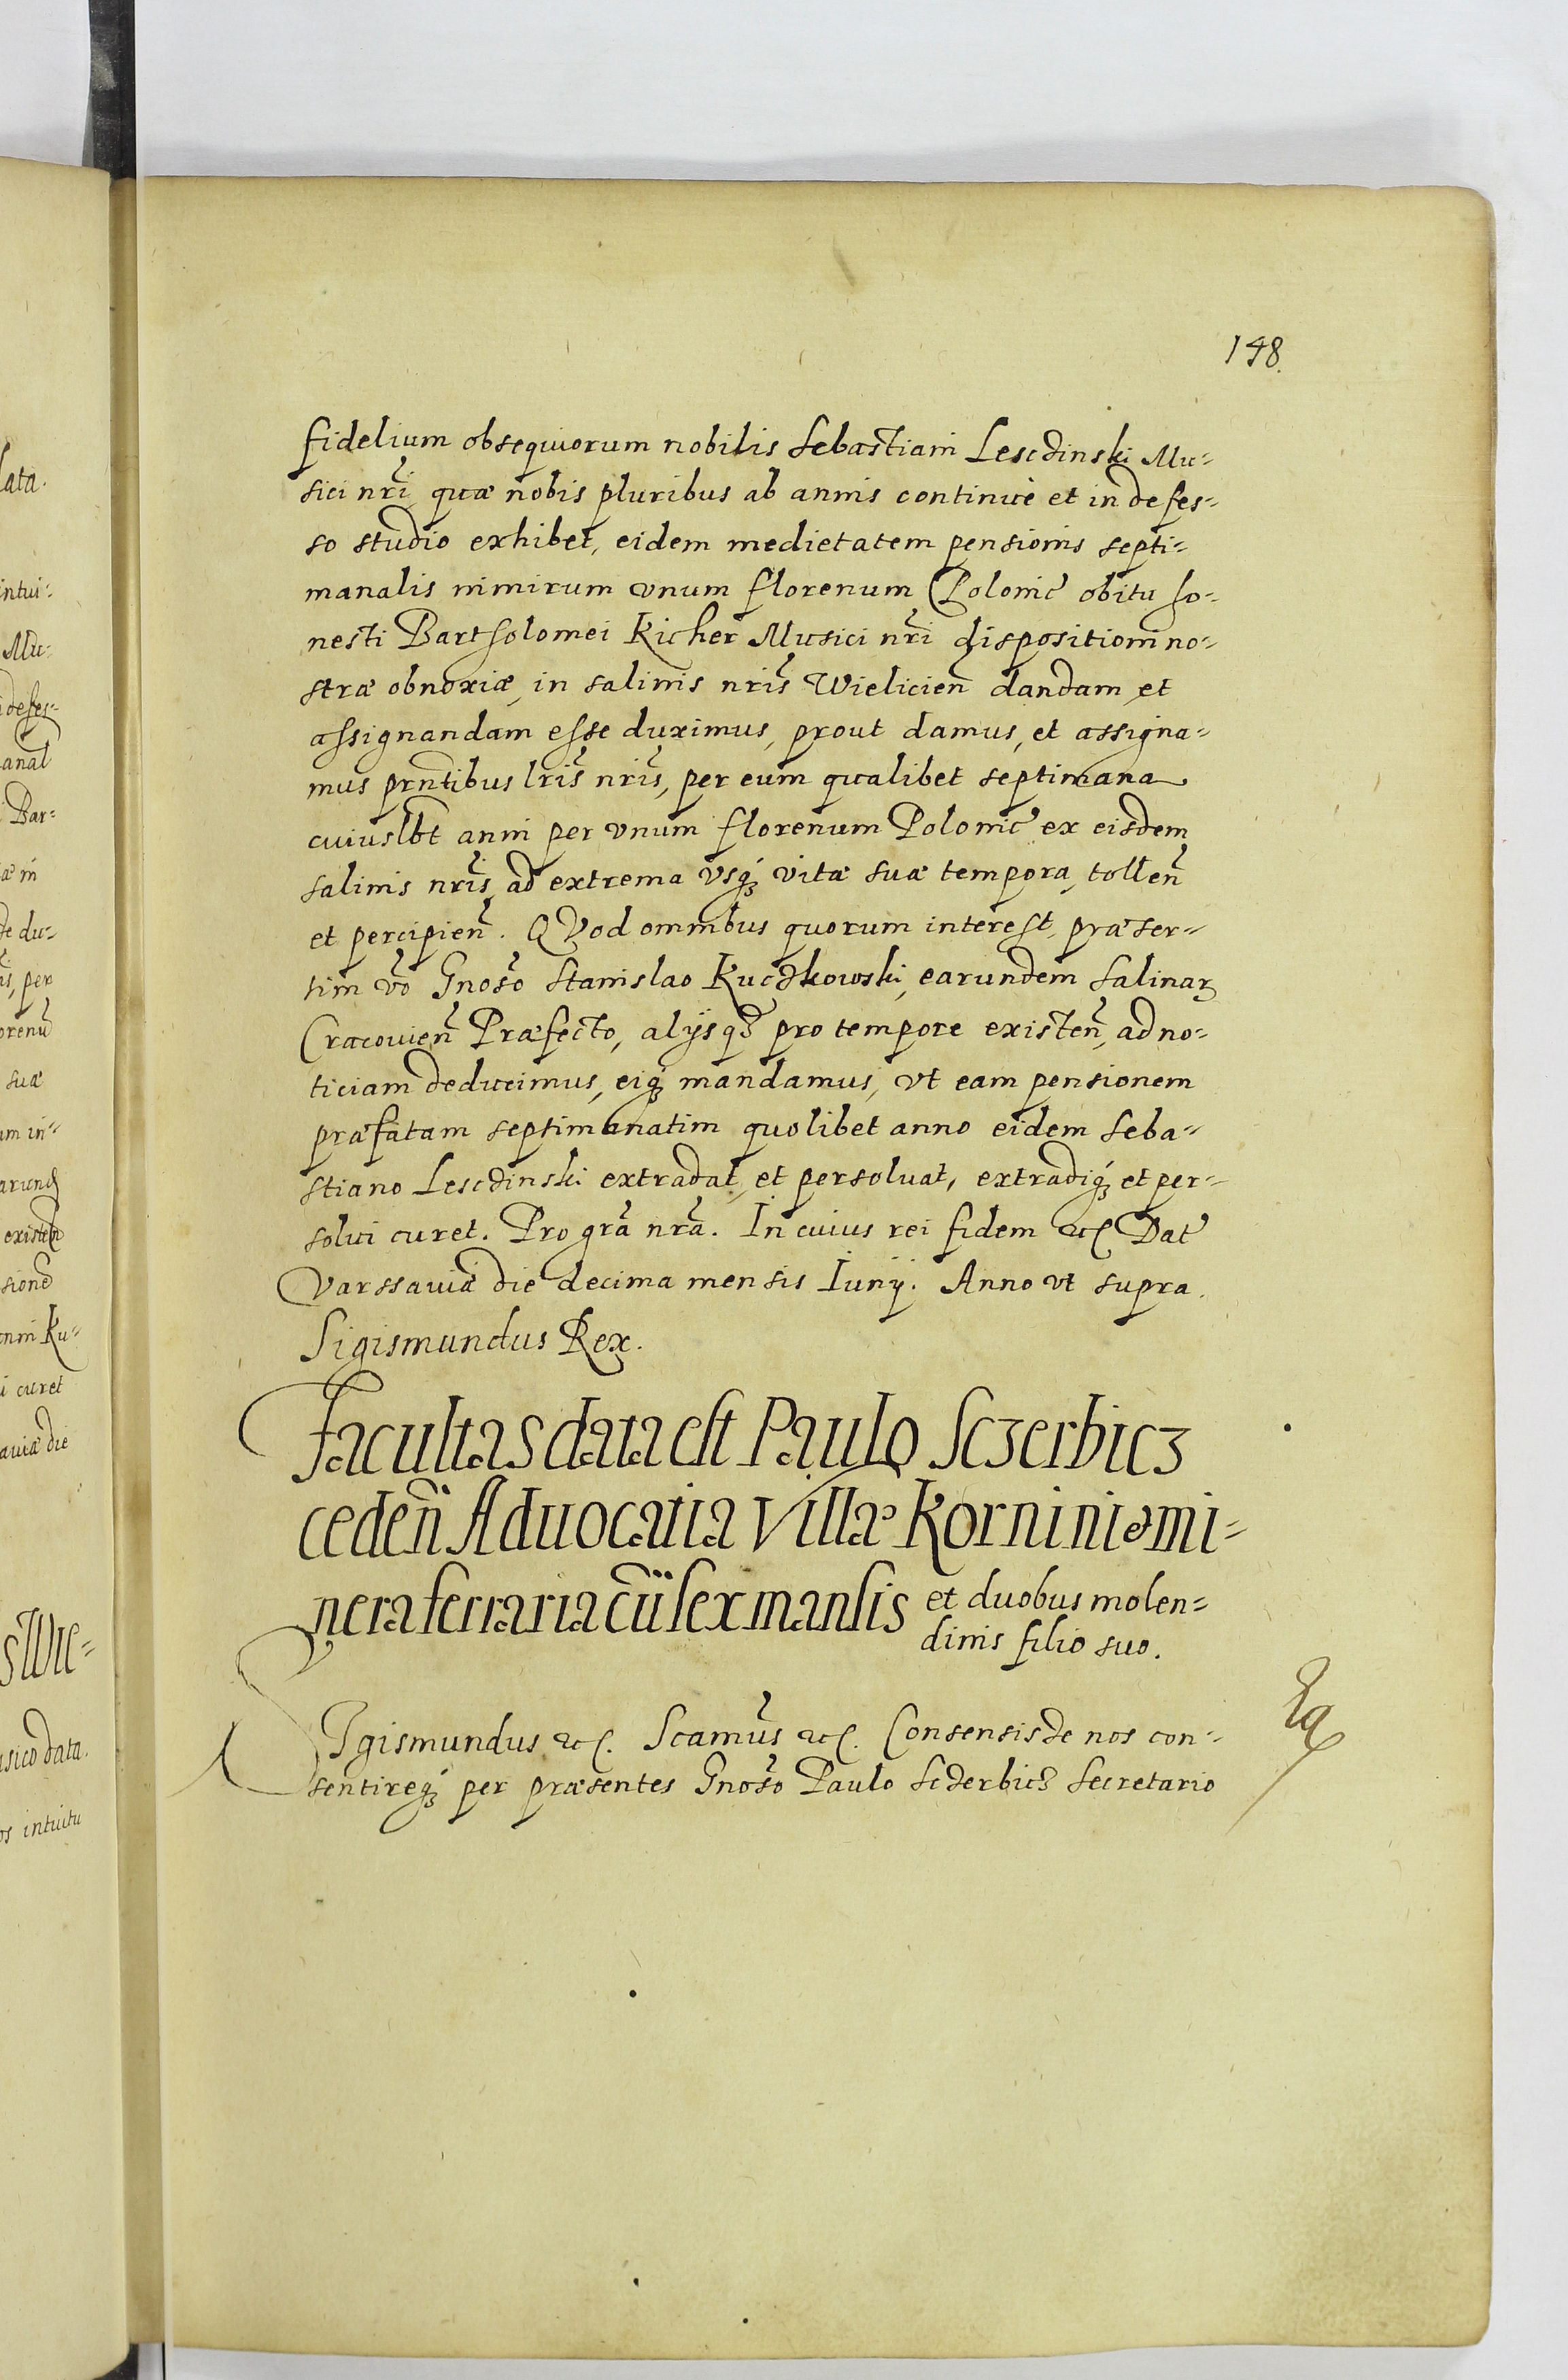 148.
fidelium obsequiorum nobilis Sebastiani Lesczinski Mu-
sici nr̃i quæ nobis pluribus ab annis continuè et indefes-
so studio exhibet, eidem medietatem pensionis septi-
manalis nimirum vnum florenum Polonic̃ obitu ho-
nesti Bartholomei Kicher Musici nr̃i dispositioni no-
stræ obnoxiæ, in salinis nr̃is Wielicien̄ dandam et
assignandam esse duximus, prout damus, et assigna-
mus prn̄tibus lr̃is nr̃is, per eum qualibet septimana
cuiuslb̄t anni per vnum florenum Polonic̃ ex eisdem
salinis nr̃is ad extrema vsq́ꝫ vitæ suæ tempora, tollen̄
et percipien̄. QVod omnibus quorum interest, præser-
tim vō Gnōso Stanislao Kuczkowski, earundem Salinarꝫ
Cracouien̄ Præfecto, alijsqꝫ pro tempore existen̄, ad no-
ticiam deducimus, eiq́ꝫ mandamus, vt eam pensionem
præfatam septimanatim quolibet anno eidem Seba-
stiano Lesczinski extradat, et persoluat, extradiq́ꝫ et per-
solui curet. Pro gr̃a nr̃a. In cuius rei fidem etc Dat̃
Varssauiæ die decima mensis Iunij. Anno vt supra.
Sigismundus Rex.
Facultas data est Paulo Sczerbicz
ceden̄ Aduocatia Villæ Kornini & mi-
nera ferraria cū sex mansis et duobus molen-
dinis filio suo.
SIgismundus etc. Scamūs etc. Consensisse nos con-
sentireq́ꝫ per præsentes Gnōso Paulo Sczerbicz Secretario